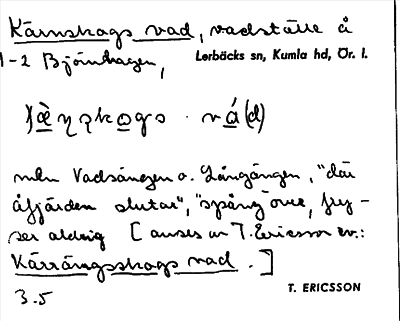 Kärnskogs vad, vadställe å
1-2 Björnhagen,
Lerbäcks sn, Kumla hd, Ör. l.
mln Vadsängen o. Långängen, "där
åfjärden slutar", "spång" över, fry-
ser aldrig [anses av T. Ericsson ev.:
Kärrängsskogs vad.]
3.5
T. ERICSSON